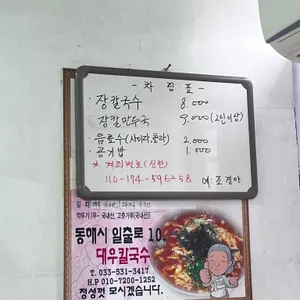 - 차 림 표 -
· 장칼국수 8.000
장칼만두국 9.000 (2인이상)
· 음료수(사이다,콜라) 2.000
· 공기밥 1.000
* 계좌번호(신한)
110-174-596258 예:조경아
깍두기 [무-국내산, 고춧가루(국내산)]
동해시 일출로 10
대우칼국수
T. 033-531-3417
H.P 010-7200-1252
정성껏 모시겠습니다.